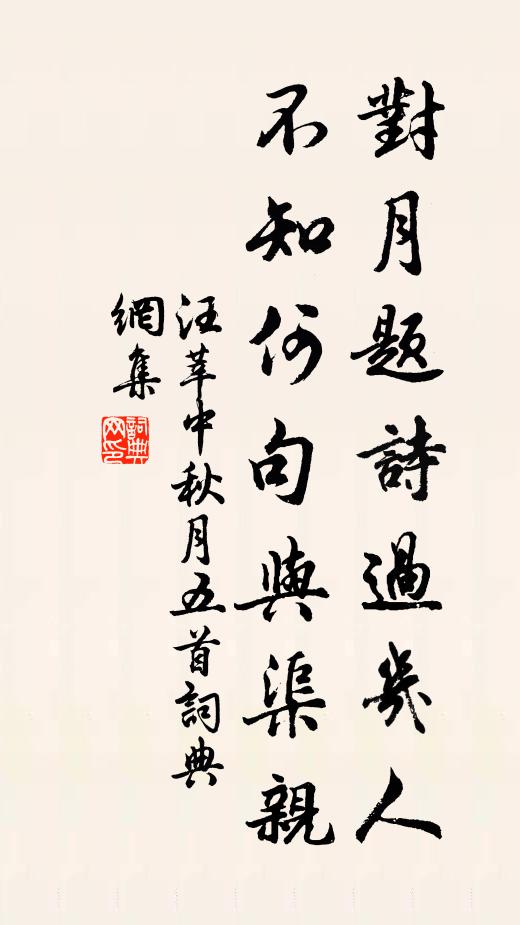 對月題詩過幾人
不知何句與渠親
汪莘中秋月五首詞典
網集
詞典
网印